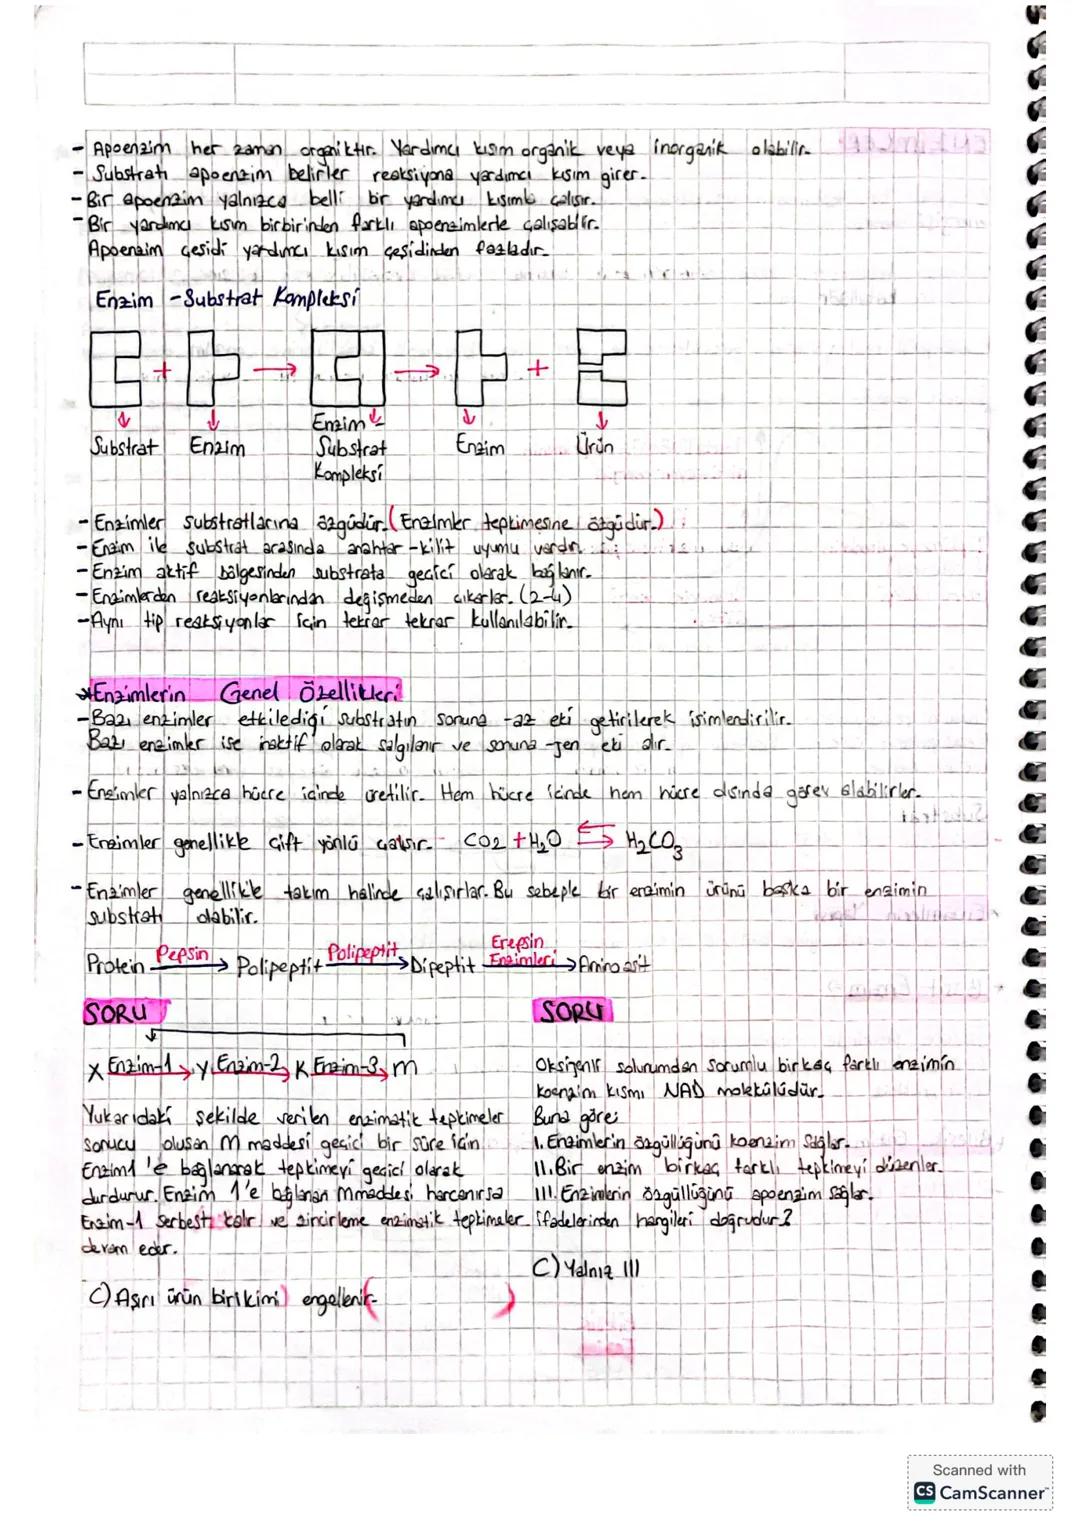 - Apoenzim her zaman organiktir. Yardımcı kısım organik veya inorganik olabilir.
- Substratı apoenzim belirler reaksiyona yardımcı kısım girer.
- Bir apoenzim yalnızca belli bir yardımcı kısımla çalışır.
- Bir yardımcı kısım birbirinden farklı apoenzimlerle çalışabilir.
Apoenzim çeşidi yardımcı kısım çeşidinden fazladır.
Enzim - Substrat Kompleksi
+ → → +
Substrat Enzim Enzim - Substrat Kompleksi Enzim Ürün
- Enzimler substratlarına özgüdür. (Enzimler tepkimesine özgüdür.)
- Enzim ile substrat arasında anahtar-kilit uyumu vardır.
- Enzim aktif bölgesinden substrata geçici olarak bağlanır.
- Enzimlerden reaksiyonlarından değişmeden çıkarlar. (2-4)
- Aynı tip reaksiyonlar için tekrar tekrar kullanılabilir.
*Enzimlerin Genel Özellikleri
- Bazı enzimler etkilediği substratın sonuna -az eki getirilerek isimlendirilir.
Bazı enzimler ise inaktif olarak salgılanır ve sonuna -jen eki alır.
- Enzimler yalnızca hücre içinde üretilir. Hem hücre içinde hem hücre dışında görev alabilirler.
- Enzimler genellikle çift yönlü çalışır. CO2 + H₂O ⇆ H₂CO₃
- Enzimler genellikle takım halinde çalışırlar. Bu sebeple bir enzimin ürünü başka bir enzimin
substratı olabilir.
Protein Pepsin → Polipeptit Polipeptit → Dipeptit Erepsin Enzimleri → Aminoasit
SORU
X Enzim-1 → Y Enzim-2 → K Enzim-3 → M
Yukarıdaki şekilde verilen enzimatik tepkimeler
sonucu oluşan M maddesi geçici bir süre için
Enzim1'e bağlanarak tepkimeyi geçici olarak
durdurur. Enzim 1'e bağlanan M maddesi harcanırsa
Enzim-1 serbest kalır ve zincirleme enzimatik tepkimeler
devam eder.
C) Aşırı ürün birikimi engellenir.
SORU
Oksijenli solunumdan sorumlu birkaç farklı enzimin
koenzim kısmı NAD molekülüdür.
Buna göre;
I. Enzimlerin özgüllüğünü koenzim sağlar.
II. Bir enzim birkaç farklı tepkimeyi düzenler.
III. Enzimlerin özgüllüğünü apoenzim sağlar.
ifadelerinden hangileri doğrudur?
C) Yalnız III
Scanned with
CS CamScanner